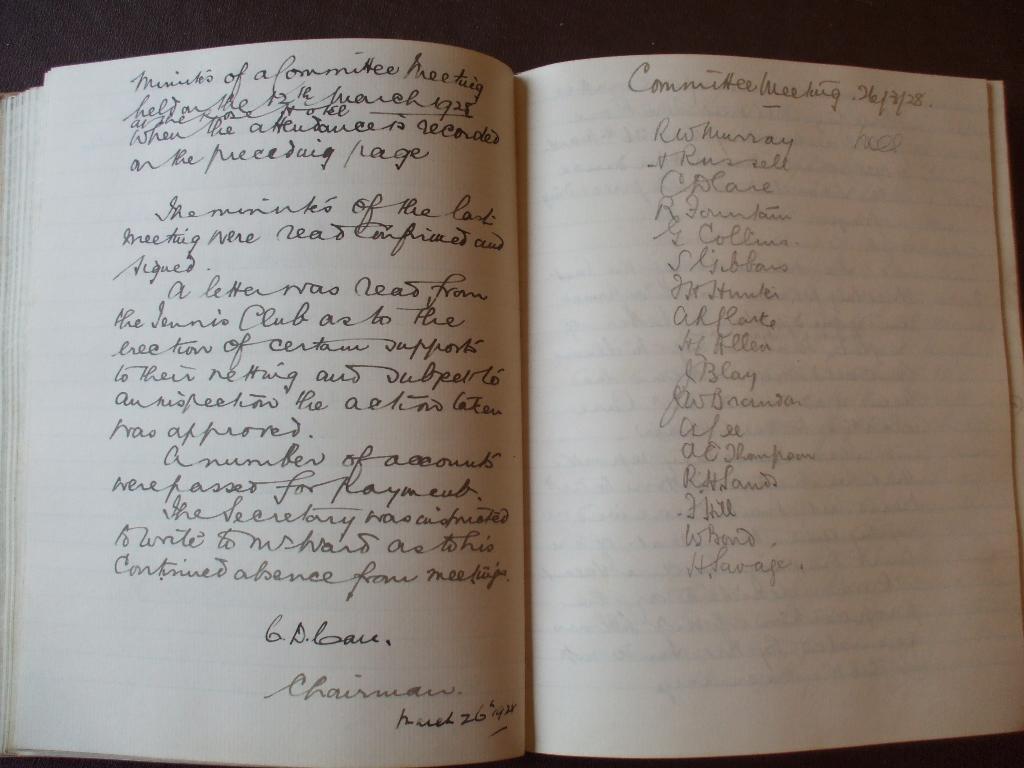 Minutes of a Committee Meeting
held on the 12th March 1928
at the Hotel
when the attendance is recorded
on the preceding page
The minutes of the last
meeting were read confirmed and
signed.
A letter was read from
the Tennis Club as to the
erection of certain supports
to their netting and subject to
an inspection the action taken
was approved.
A number of accounts
were passed for payment.
The Secretary was instructed
to write to Mr Ward as to his
continued absence from meetings.
C. D. Care.
Chairman.
March 26th 1928
Committee Meeting. 26/3/28.
R W Murray
A Russell
C D Care
R Fountain
G Collins.
S Gibbons
F H Hunter
A R Clarke
H C Allen
J Blay
J W Brandon
A Lee
A E Thompson
R. H. Sands
F Hill
W Bond.
H. Savage.